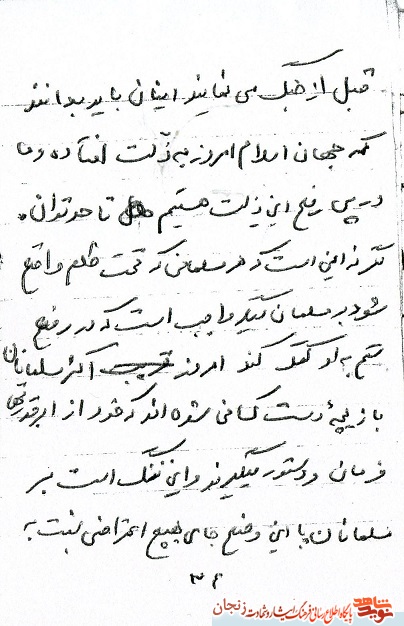 قبل از جنگ می نمایند اینان باید بدانند
که جهان اسلام امروز به ذلت افتاده و ما
در پی رفع این ذلت هستیم تا حد توان.
مگر نه این است که هر مسلمانی که تحت ظلم واقع
شود بر مسلمان دیگر واجب است که در رفع
ستم به او کمک کند امروز اکثر مسلمانان
بازیچهٔ دست کسانی شده اند که خود از ابرقدرتها
فرمان و دستور میگیرند و این ننگ است بر
مسلمانان با این وضع جای هیچ اعتراضی نسبت به
۳۶
نوید شاهد
پایگاه اطلاع رسانی فرهنگ ایثار و شهادت زنجان